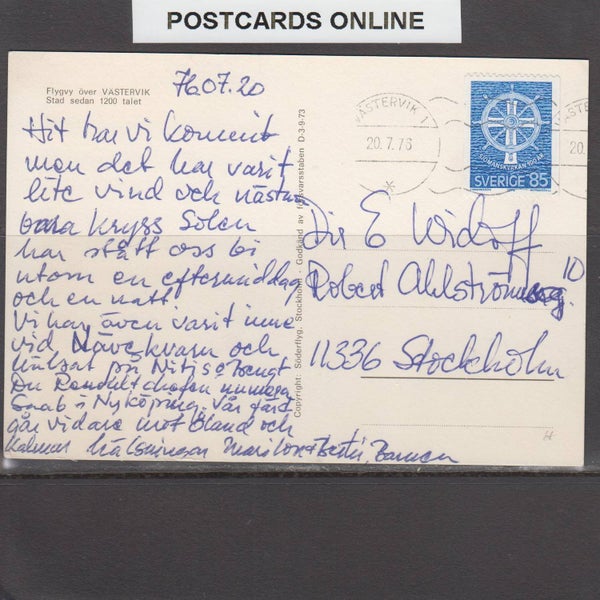 POSTCARDS ONLINE
Flygvy över VÄSTERVIK
Stad sedan 1200 talet
76.07.20
Hit har vi kommit
men det har varit
lite vind och nästan
bara kryss Solen
har stått oss bi
utom en eftermiddag
och en natt
Vi har även varit inne
vid Näveskvarn och
hälsat på
Saab i Nyköping. Vår färd
går vidare mot Öland och
Kalmar Hälsningar
Copyright: Söderflyg. Stockholm - Godkänd av försvarsstaben D-3-9-73
VÄSTERVIK 1
20.7.76
SJÖMANSKYRKAN 100 ÅR
SVERIGE 85
VÄSTE
20.
Dir E Widoff
Robert Ahlströms väg 10
11336 Stockholm